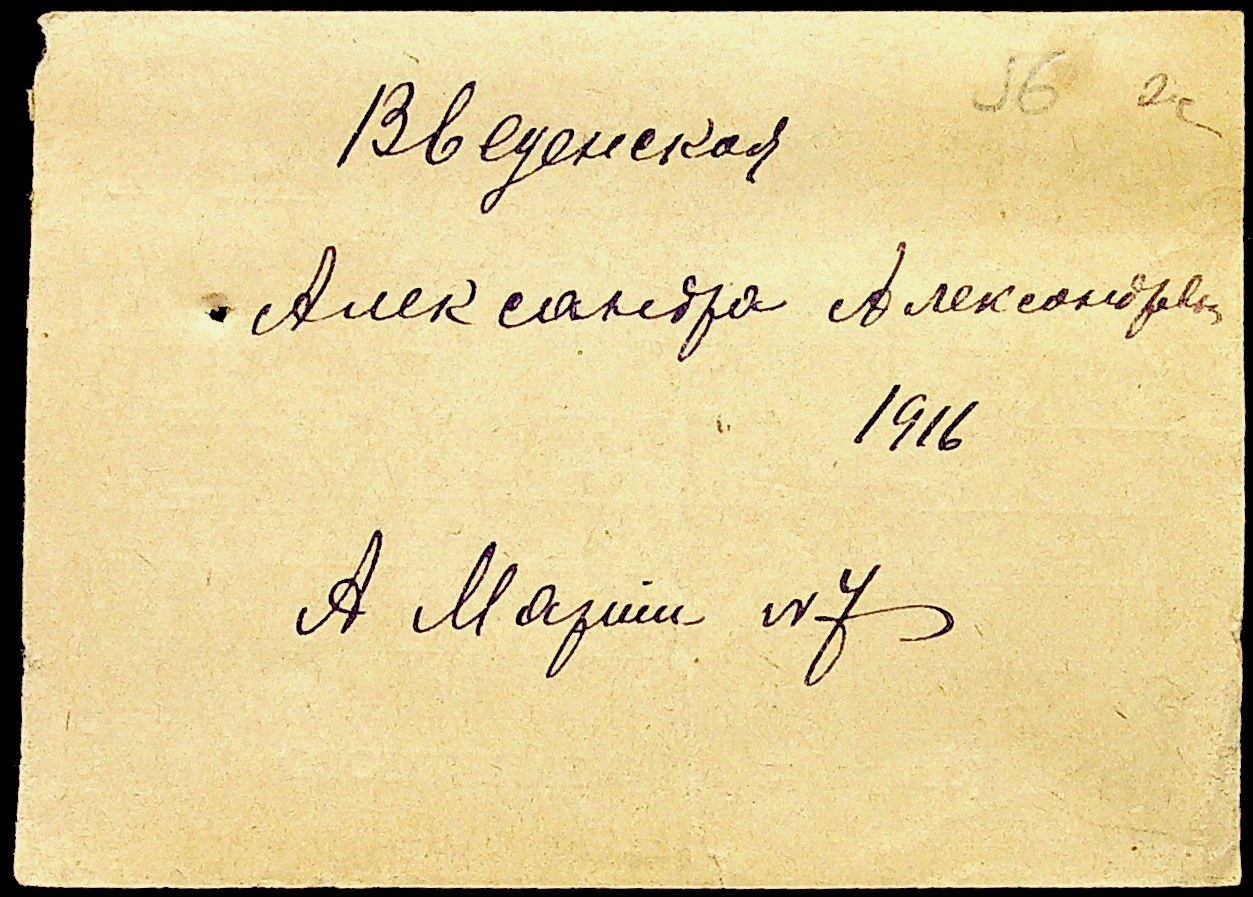 56
Введенская
Александра Александровн
1916
А Марти № 7